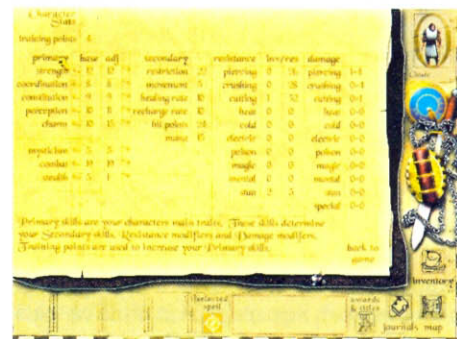 Character
Stats
training points 4
primary base adj secondary resistance inv/res damage
strength 12 12 restriction piercing 0 piercing 1-1
coordination 8 8 movement crushing 0 crushing 1-1
constitution 9 9 healing rate 10 cutting 1 cutting 1-1
perception 10 8 recharge rate 10 heat 0 0 heat 0-0
charm 10 15 hit points cold 0 0 cold 0-0
mana electric 0 0 electric 0-0
mysticism 5 5 poison 0 0 poison 0-0
combat 19 19 magic 0 0 magic 0-0
stealth 5 1 mental 0 0 mental 0-0
stun 2 5 stun 0-0
special 0-0
Primary skills are your characters main traits. These skills determine
your Secondary skills, Resistance modifiers and Damage modifiers.
Training points are used to increase your Primary skills.
back to
game
Inventory
Selected
spell
awards
& titles
journals map